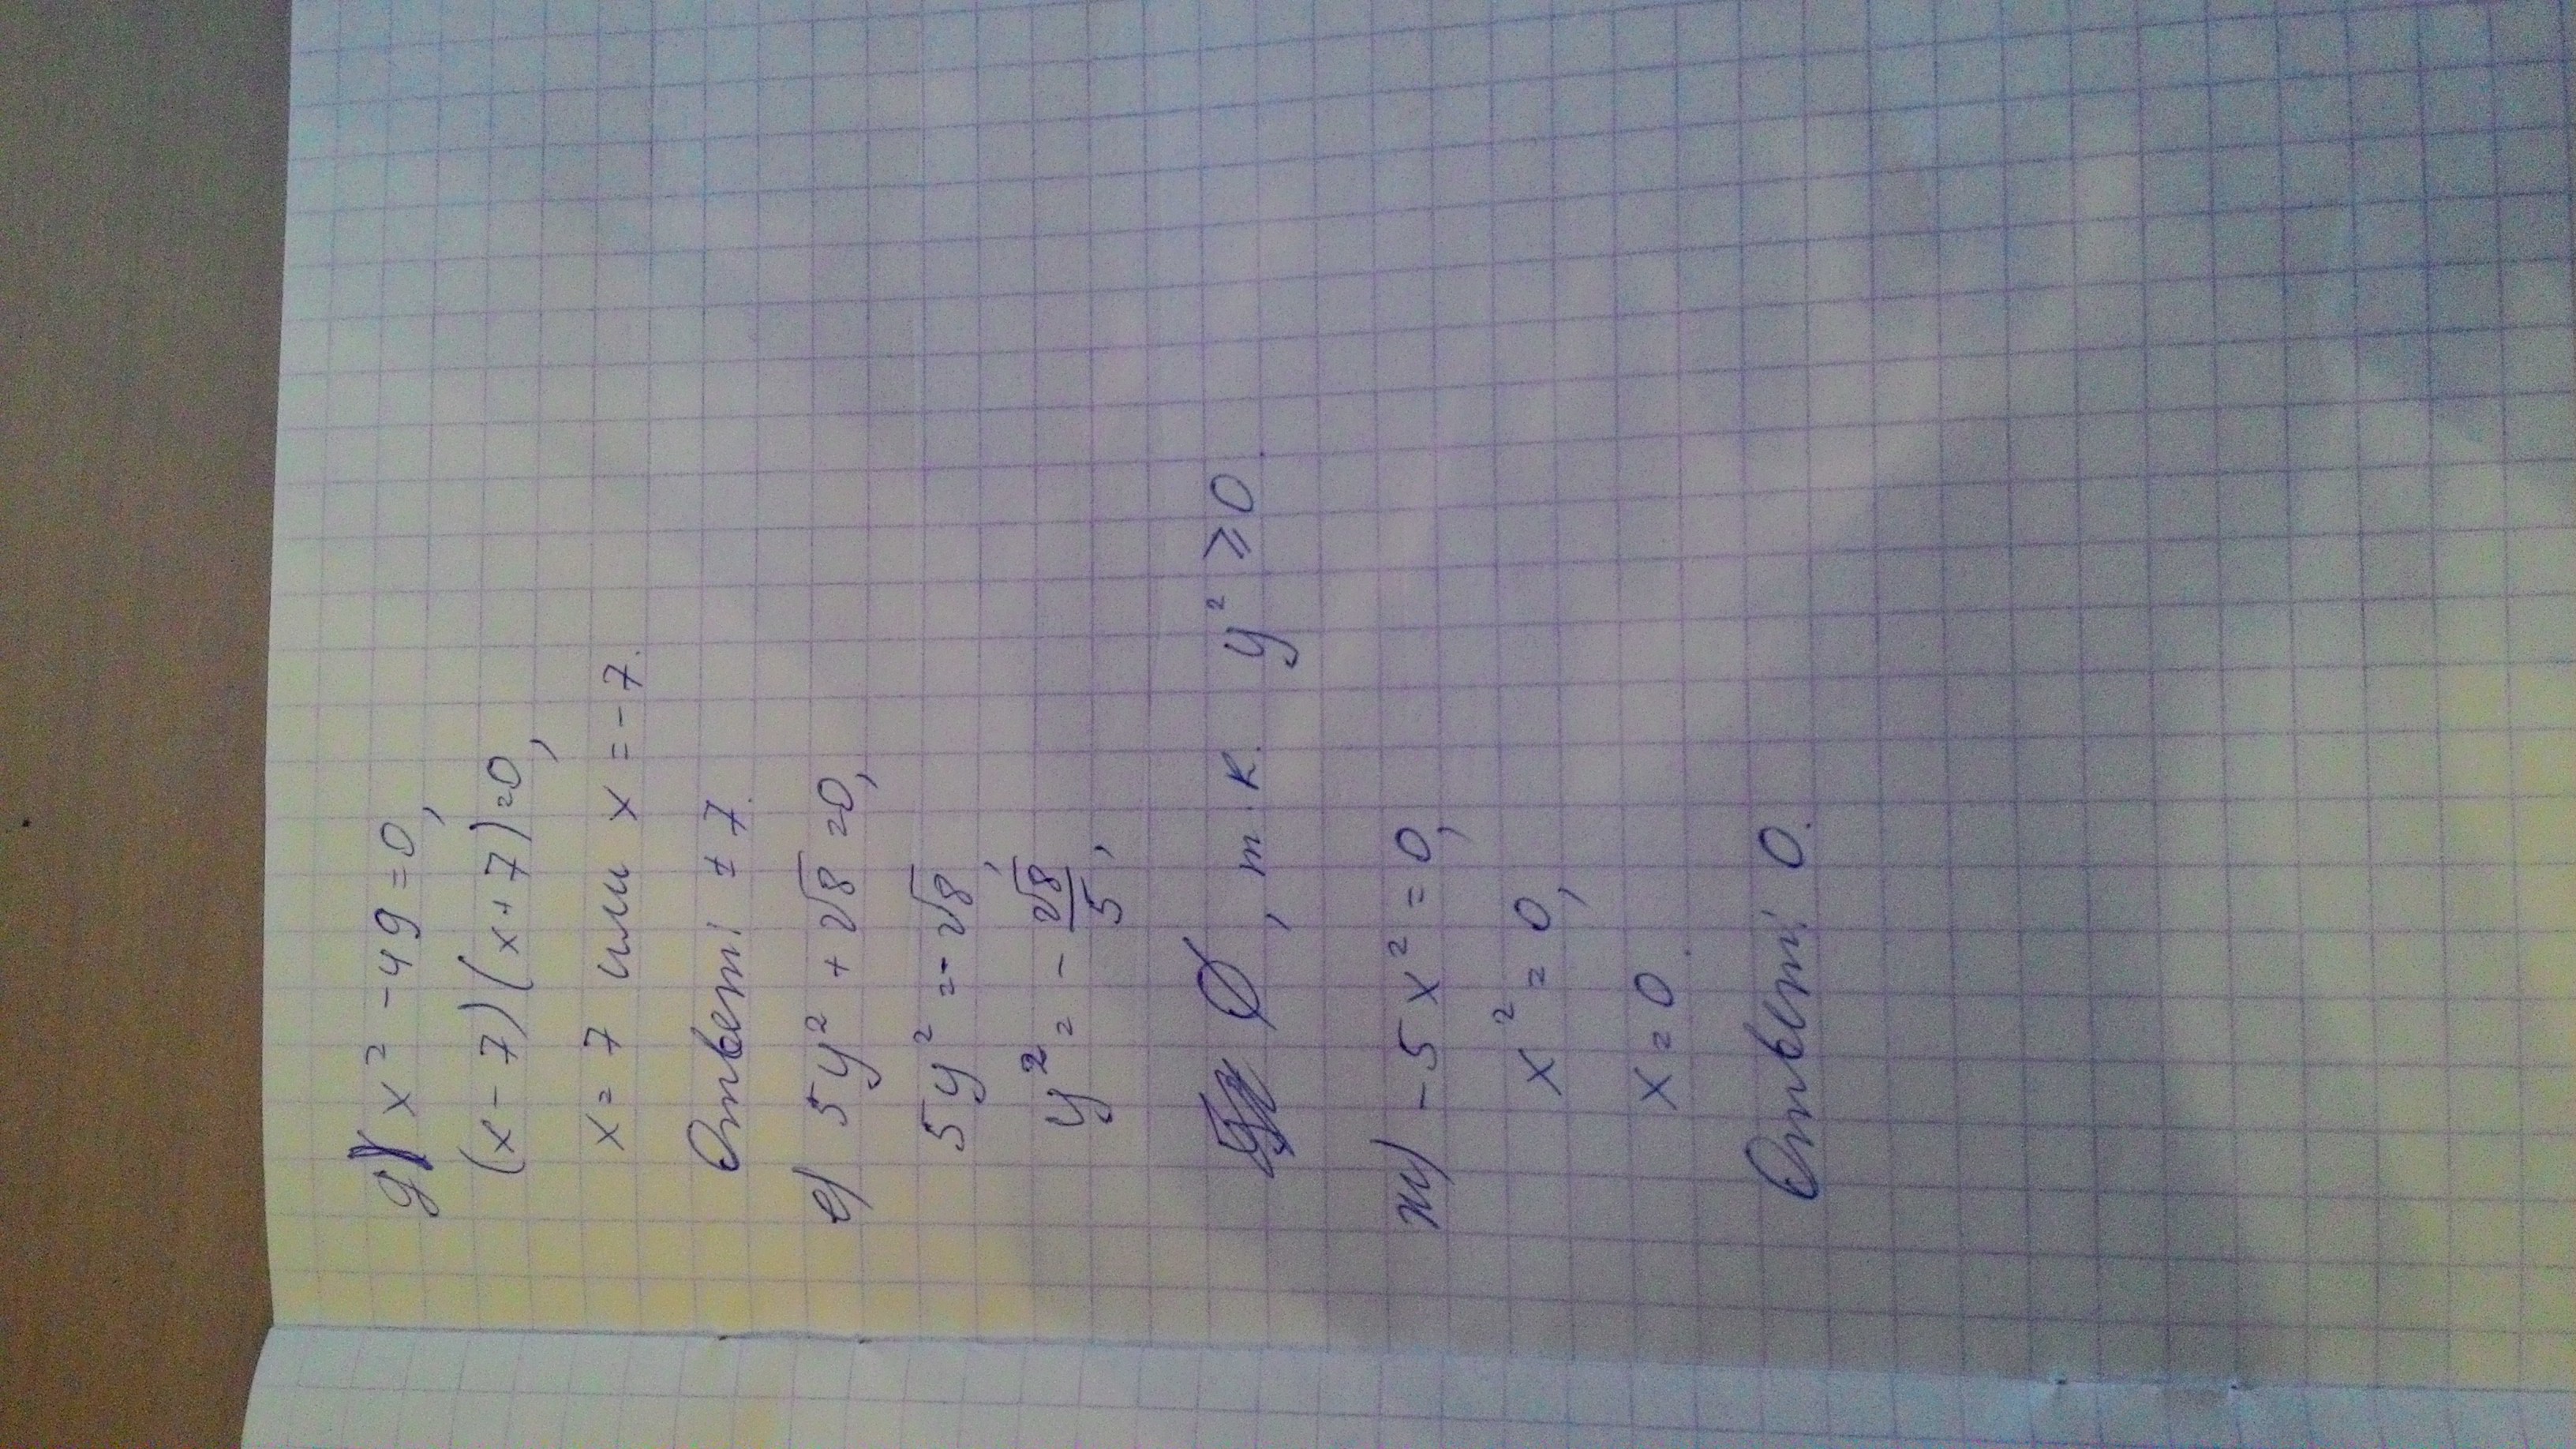 д) x² - 49 = 0,
(x - 7)(x + 7) = 0,
x = 7 или x = -7.
Ответ: ± 7.
е) 5y² + √8 = 0,
5y² = -√8,
y² = - √8/5,
∅, т.к. y² ⩾ 0.
ж) -5x² = 0,
x² = 0,
x = 0.
Ответ: 0.